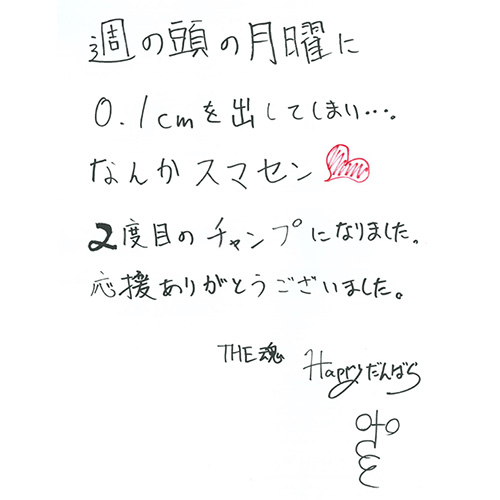 週の頭の月曜に
0.1cmを出してしまい…。
なんかスマセン
2度目のチャンプになりました。
応援ありがとうございました。
THE魂 Happyだんばら